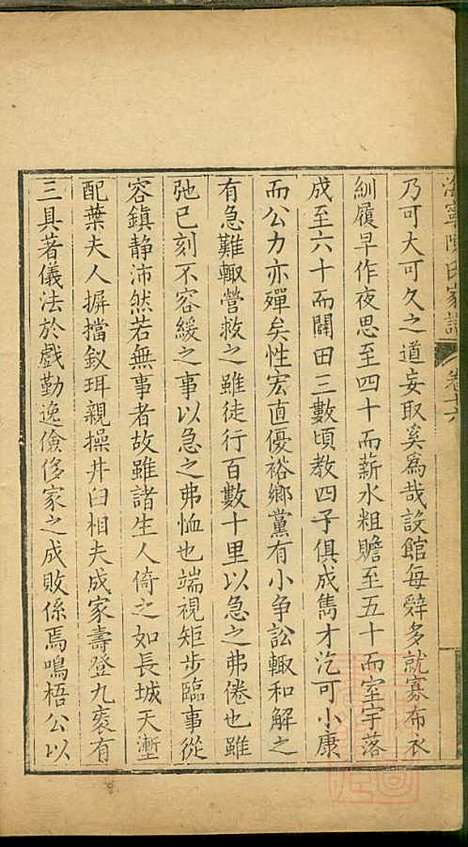 海寧陳氏家譜 卷十六
乃可大可久之道妄取奚為哉設館每辭多就寡布衣
紃履早作夜思至四十而薪水粗贍至五十而室宇落
成至六十而闢田三數頃教四子俱成雋才汔可小康
而公力亦殫矣性宏直優裕鄉黨有小争訟輙和解之
有急難輙營救之雖徒行百數十里以急之弗倦也雖
弛已刻不容緩之事以急之弗恤也端視矩步臨事從
容鎮静沛然若無事者故雖諸生人倚之如長城天塹
配葉夫人摒擋釵珥親操井臼相夫成家壽登九袠有
三具著儀法於戲勤逸儉侈家之成敗係焉鳴梧公以